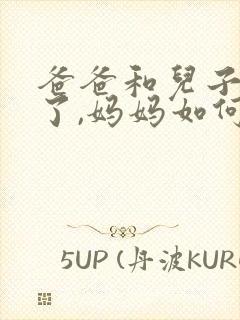 爸爸和兒子
了,妈妈如何
5UP (丹波KUR